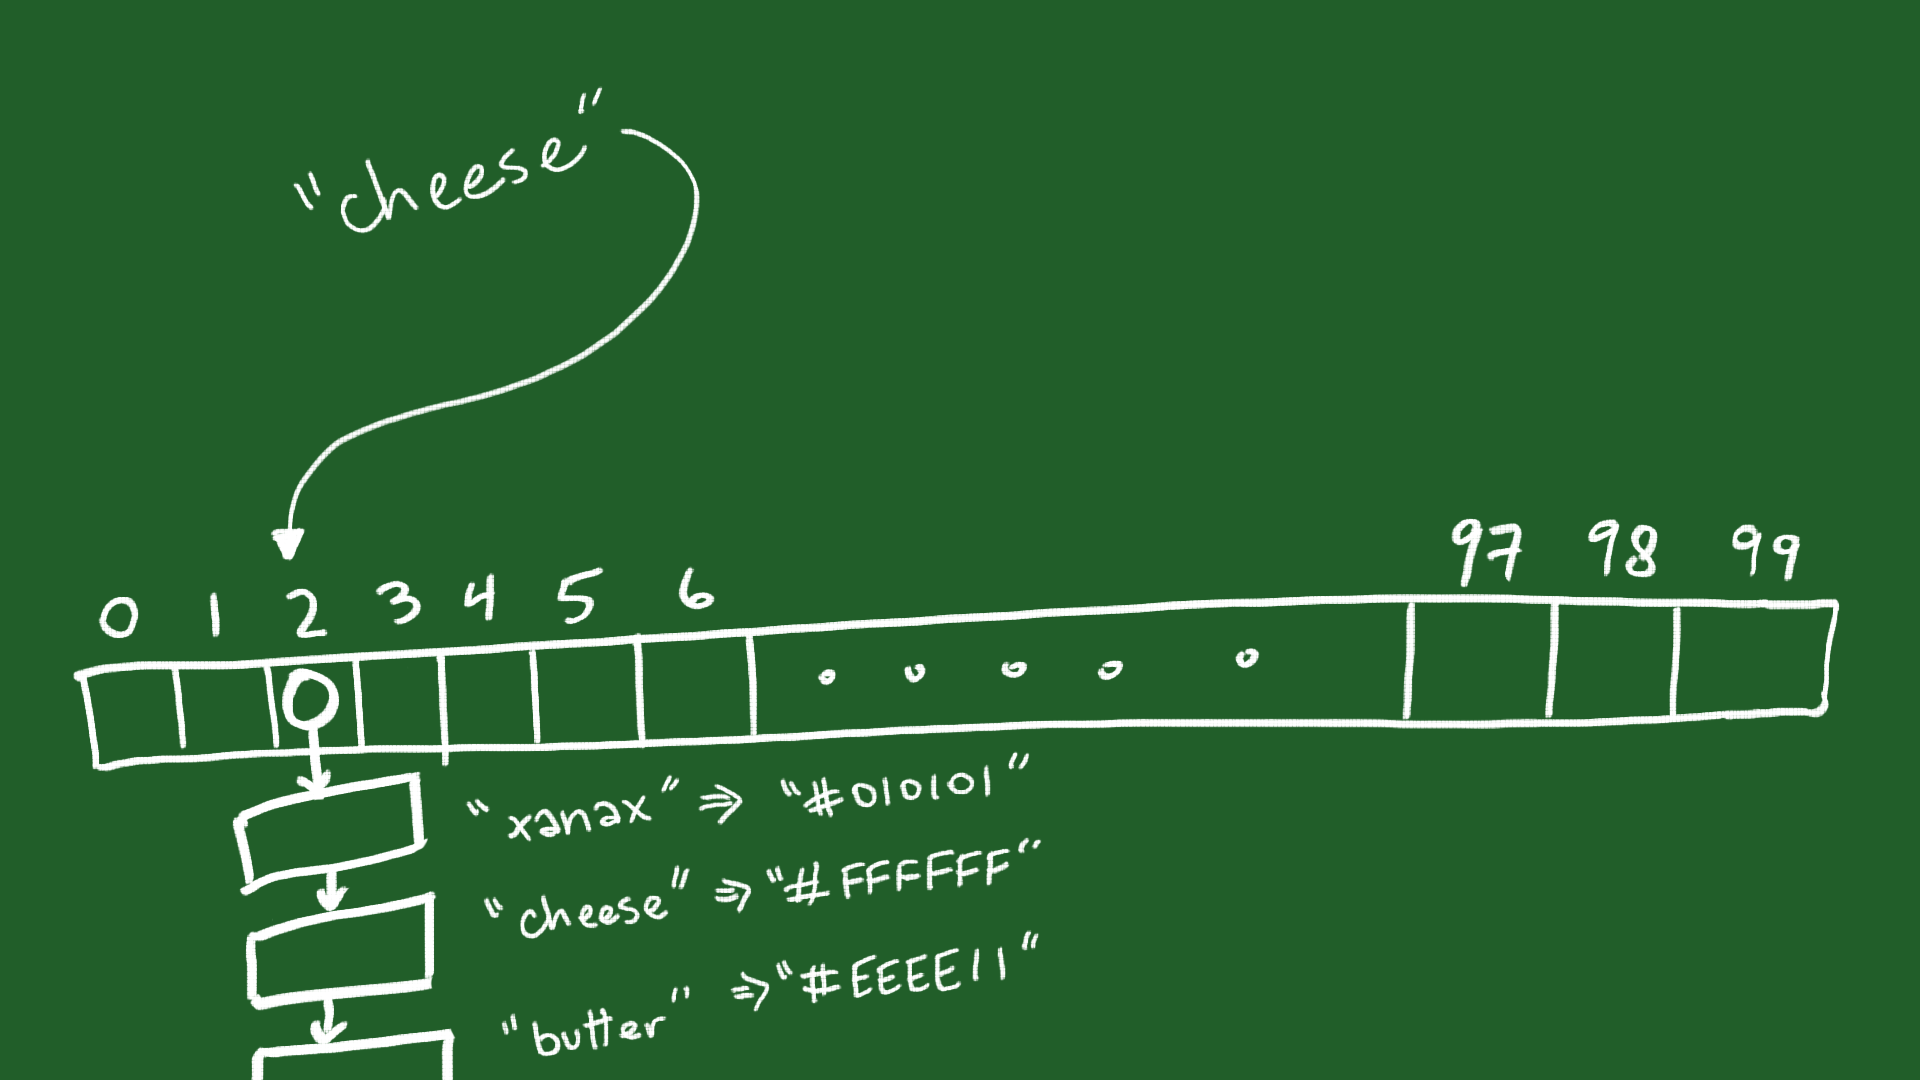 "cheese"
0 1 2 3 4 5 6 97 98 99
"xanax" => "#010101"
"cheese" => "#FFFFFF"
"butter" => "#EEEE11"